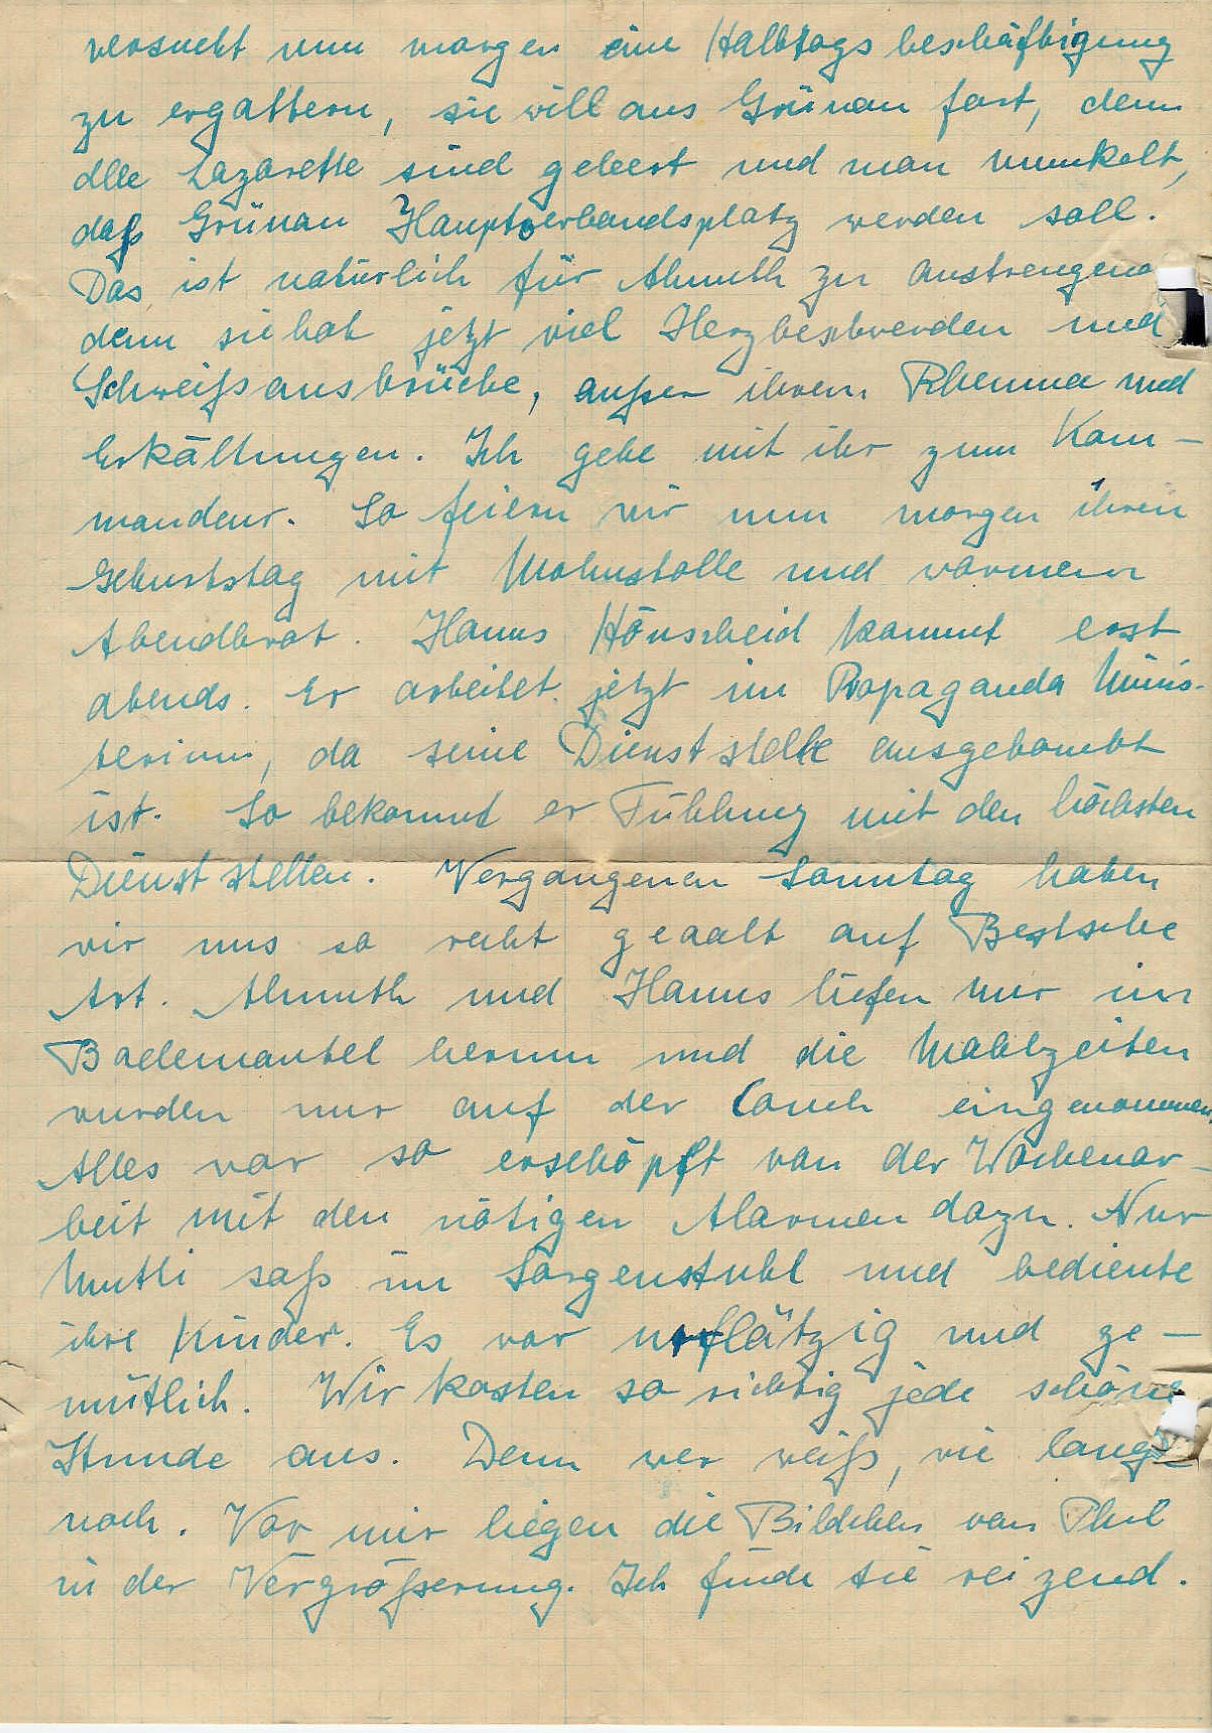 versucht nun morgen eine Halbtagsbeschäftigung
zu ergattern, sie will aus Grünau fort, denn
alle Lazarette sind geleert und man munkelt,
daß Grünau Hauptverbandsplatz werden soll.
Das ist natürlich für Almuth zu anstrengend
denn sie hat jetzt viel Herzbeschwerden und
Schweißausbrüche, außer ihrem Rheuma und
Erkältungen. Ich gehe mit ihr zum Kom-
mandeur. So feiern wir nun morgen ihren
Geburtstag mit Mohnstolle und warmem
Abendbrot. Hanns Hönscheid kommt erst
abends. Er arbeitet jetzt im Propaganda Minis-
terium, da seine Dienststelle ausgebombt
ist. So bekommt er Fühlung mit den höchsten
Dienststellen. Vergangenen Sonntag haben
wir uns so recht geaalt auf
Art. Almuth und Hanns liefen nur im
Bademantel herum und die Mahlzeiten
wurden nur auf der Couch eingenommen.
Alles war so erschöpft von der Wochenar-
beit mit den nötigen Alarmen dazu. Nur
Mutti saß im Sorgenstuhl und bediente
ihre Kinder. Es war unflätzig und ge-
mütlich. Wir kosten so richtig jede schöne
Stunde aus. Denn wer weiß, wie lange
noch. Vor mir liegen die Bildchen von
in der Vergrößerung. Ich finde sie reizend.